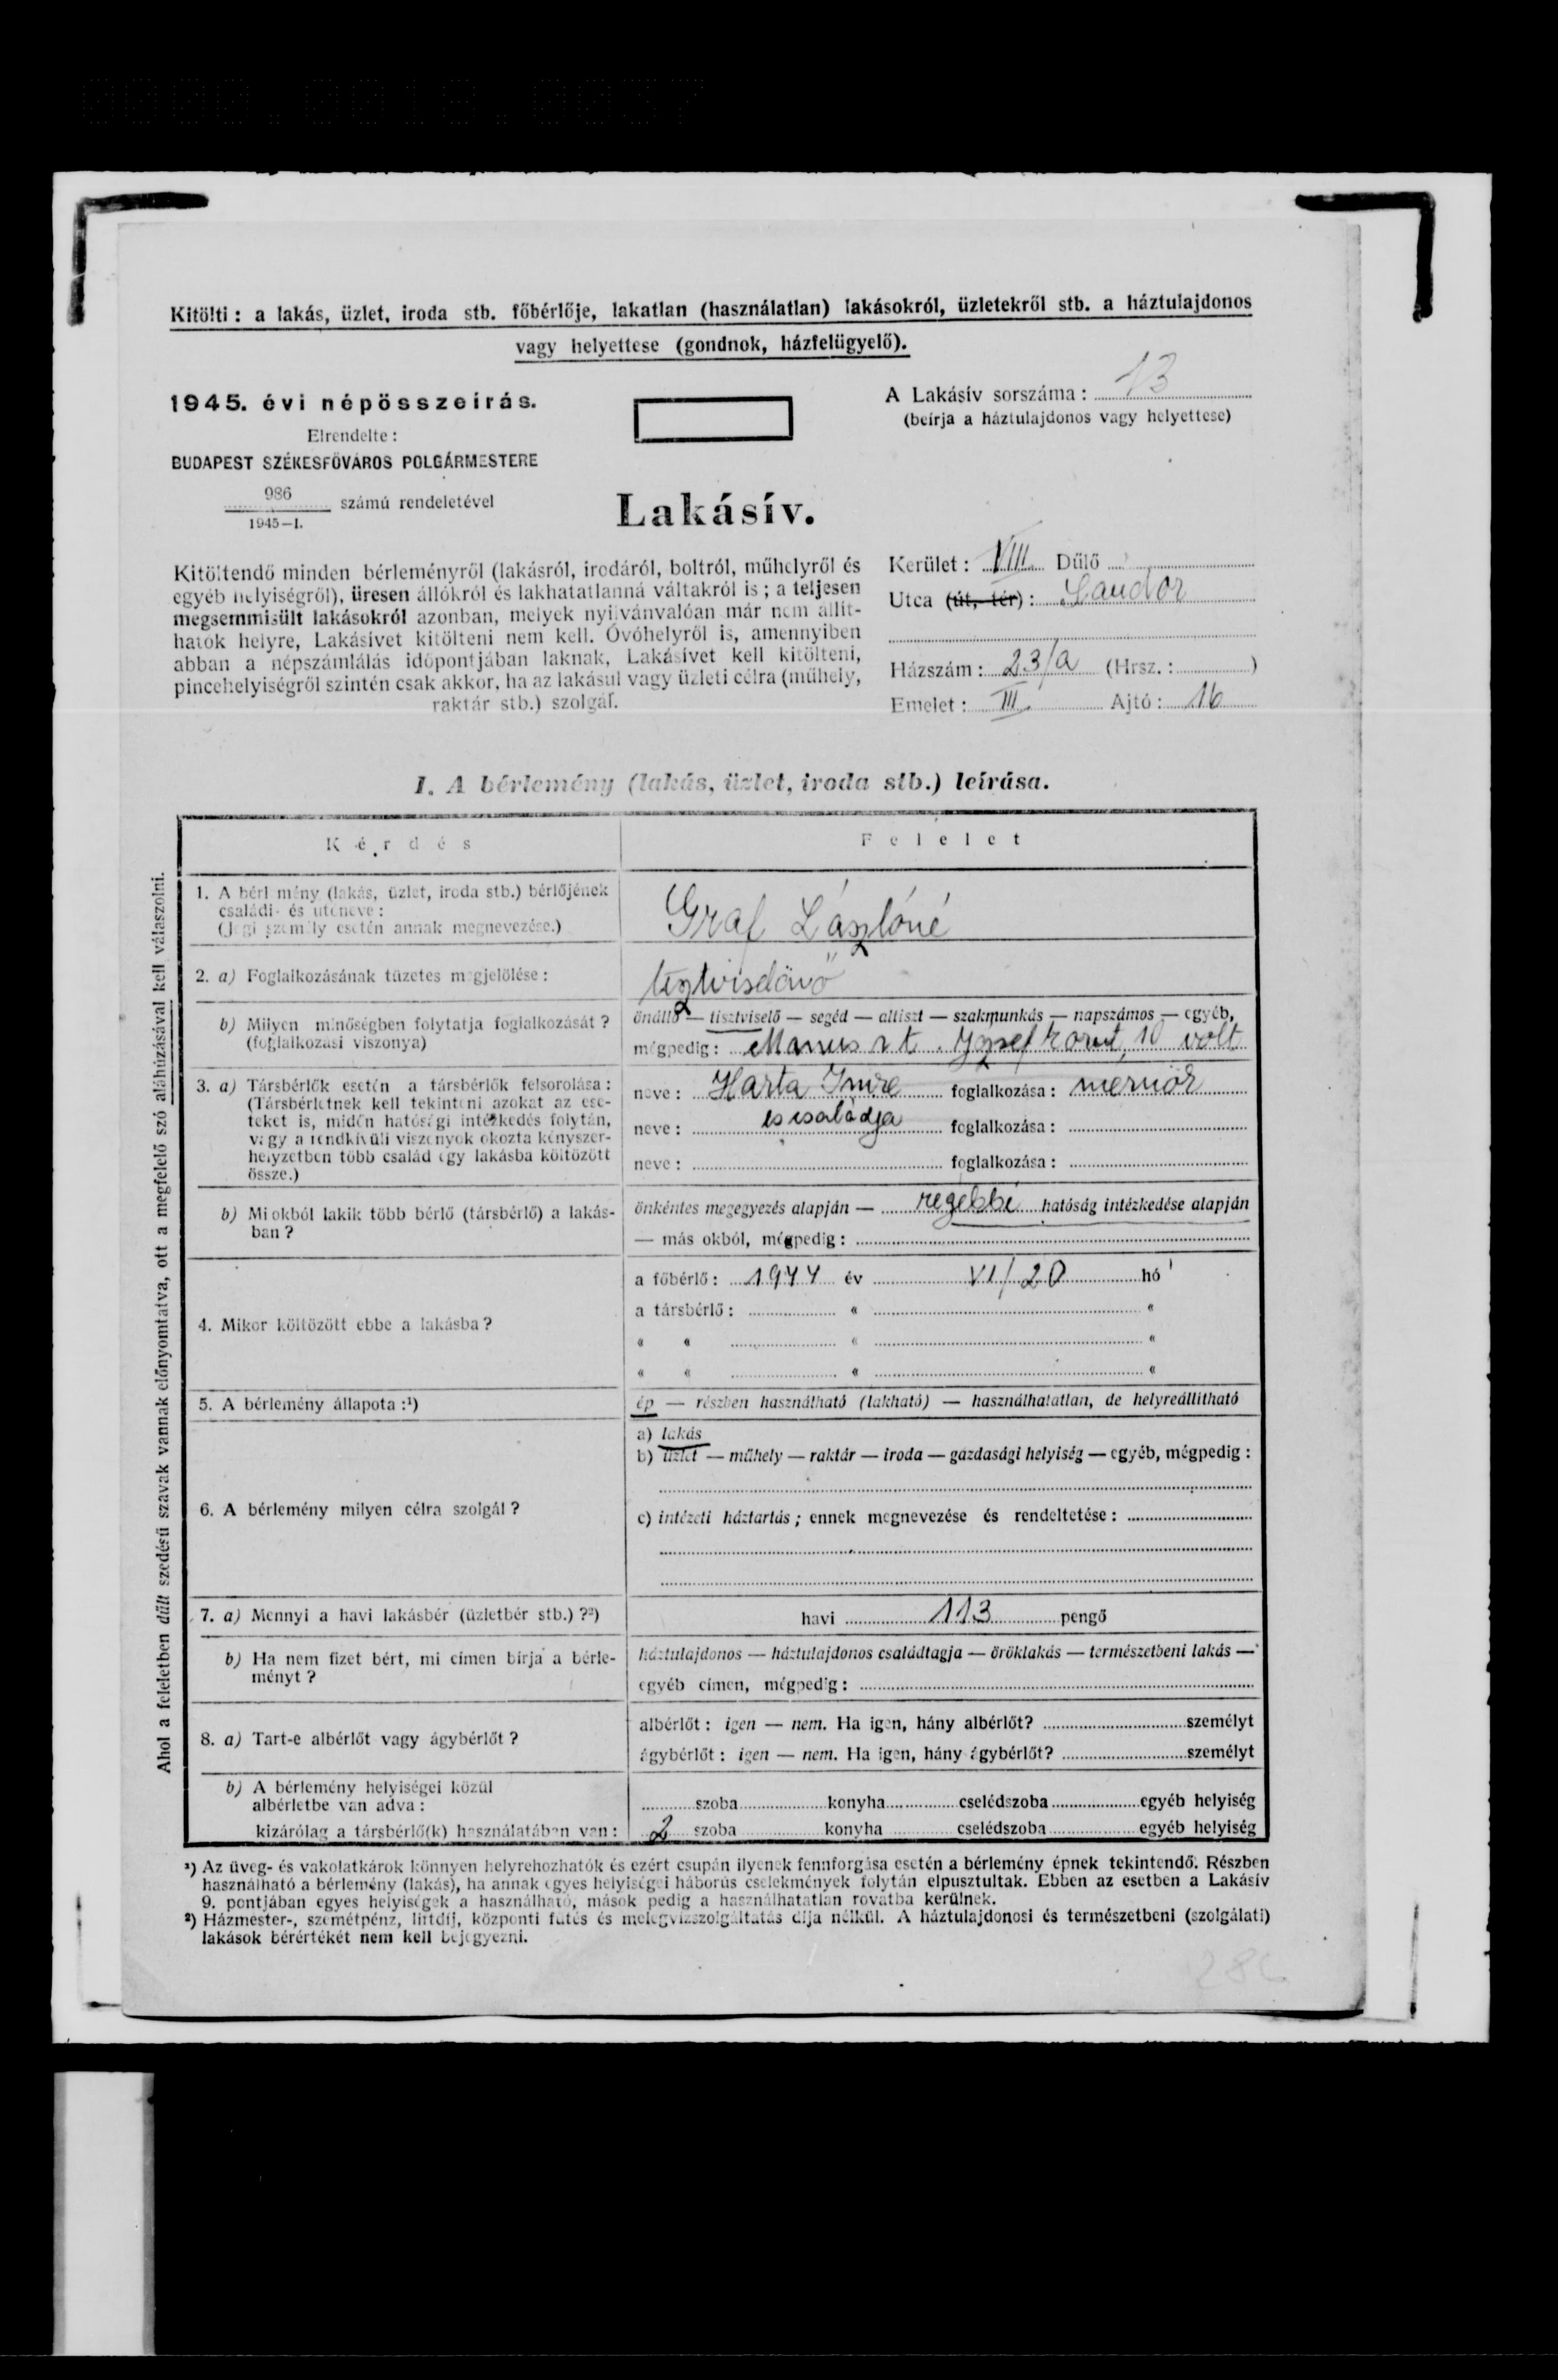 0000.0018.0037
Kitölti: a lakás, üzlet, iroda stb. főbérlője, lakatlan (használatlan) lakásokról, üzletekről stb. a háztulajdonos
vagy helyettese (gondnok, házfelügyelő).
1945. évi népösszeírás.
Elrendelte:
BUDAPEST SZÉKESFŐVÁROS POLGÁRMESTERE
986
1945-I.
számú rendeletével
A Lakásív sorszáma: 13
(beírja a háztulajdonos vagy helyettese)
Lakásív.
Kitöltendő minden bérleményről (lakásról, irodáról, boltról, műhelyről és
egyéb helyiségről), üresen állókról és lakhatatlanná váltakról is; a teljesen
megsemmisült lakásokról azonban, melyek nyilvánvalóan már nem állít-
hatók helyre, Lakásívet kitölteni nem kell. Óvóhelyről is, amennyiben
abban a népszámlálás időpontjában laknak, Lakásívet kell kitölteni,
pincehelyiségről szintén csak akkor, ha az lakásul vagy üzleti célra (műhely,
raktár stb.) szolgál.
Kerület: VIII. Dűlő
Utca (út, tér): Sandor
Házszám: 23/a (Hrsz.: )
Emelet: III. Ajtó: 16
I. A bérlemény (lakás, üzlet, iroda stb.) leírása.
Kérdés
Felelet
1. A bérl mény (lakás, üzlet, iroda stb.) bérlőjének
családi- és utóneve:
(Jogi személy esetén annak megnevezése.)
Graf Lászlóné
2. a) Foglalkozásának tüzetes megjelölése:
tisztviselőnő
b) Milyen minőségben folytatja foglalkozását?
(foglalkozási viszonya)
önálló — tisztviselő — segéd — altiszt — szakmunkás — napszámos — egyéb,
mégpedig: rt. József 10 volt
3. a) Társbérlők esetén a társbérlők felsorolása:
(Társbérletnek kell tekinteni azokat az ese-
teket is, midőn hatósági intézkedés folytán,
vagy a rendkívüli viszonyok okozta kényszer-
helyzetben több család egy lakásba költözött
össze.)
neve: Harta Imre foglalkozása: mernök
neve: és családja foglalkozása:
neve: foglalkozása:
b) Mi okból lakik több bérlő (társbérlő) a lakás-
ban?
önkéntes megegyezés alapján — régebbi hatóság intézkedése alapján
— más okból, mégpedig:
4. Mikor költözött ebbe a lakásba?
a főbérlő: 1944 év VI/20 hó
a társbérlő: « «
« « « «
« « « «
5. A bérlemény állapota:¹)
ép — részben használható (lakható) — használhatatlan, de helyreállítható
6. A bérlemény milyen célra szolgál?
a) lakás
b) üzlet — műhely — raktár — iroda — gazdasági helyiség — egyéb, mégpedig:
c) intézeti háztartás; ennek megnevezése és rendeltetése:
7. a) Mennyi a havi lakásbér (üzletbér stb.)?²)
havi 113 pengő
b) Ha nem fizet bért, mi címen bírja a bérle-
ményt?
háztulajdonos — háztulajdonos családtagja — öröklakás — természetbeni lakás —
egyéb címen, mégpedig:
8. a) Tart-e albérlőt vagy ágybérlőt?
albérlőt: igen — nem. Ha igen, hány albérlőt? személyt
ágybérlőt: igen — nem. Ha igen, hány ágybérlőt? személyt
b) A bérlemény helyiségei közül
albérletbe van adva:
szoba konyha cselédszoba egyéb helyiség
kizárólag a társbérlő(k) használatában van:
2 szoba konyha cselédszoba egyéb helyiség
Ahol a feleletben dűlt szedésű szavak vannak előnyomtatva, ott a megfelelő szó aláhúzásával kell válaszolni.
¹) Az üveg- és vakolatkárok könnyen helyrehozhatók és ezért csupán ilyenek fennforgása esetén a bérlemény épnek tekintendő. Részben
használható a bérlemény (lakás), ha annak egyes helyiségei háborús cselekmények folytán elpusztultak. Ebben az esetben a Lakásív
9. pontjában egyes helyiségek a használható, mások pedig a használhatatlan rovatba kerülnek.
²) Házmester-, szemétpénz, liftdíj, központi fűtés és melegvízszolgáltatás díja nélkül. A háztulajdonosi és természetbeni (szolgálati)
lakások bérértékét nem kell bejegyezni.